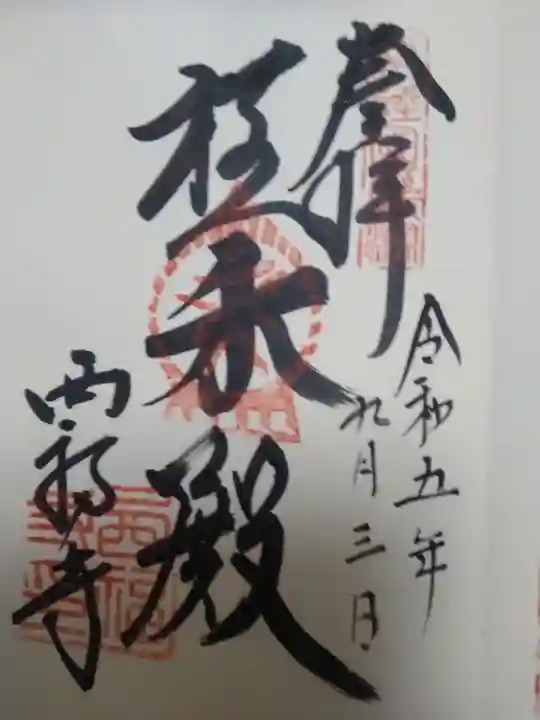 奉拝
令和五年
九月三日
極楽殿
西福寺